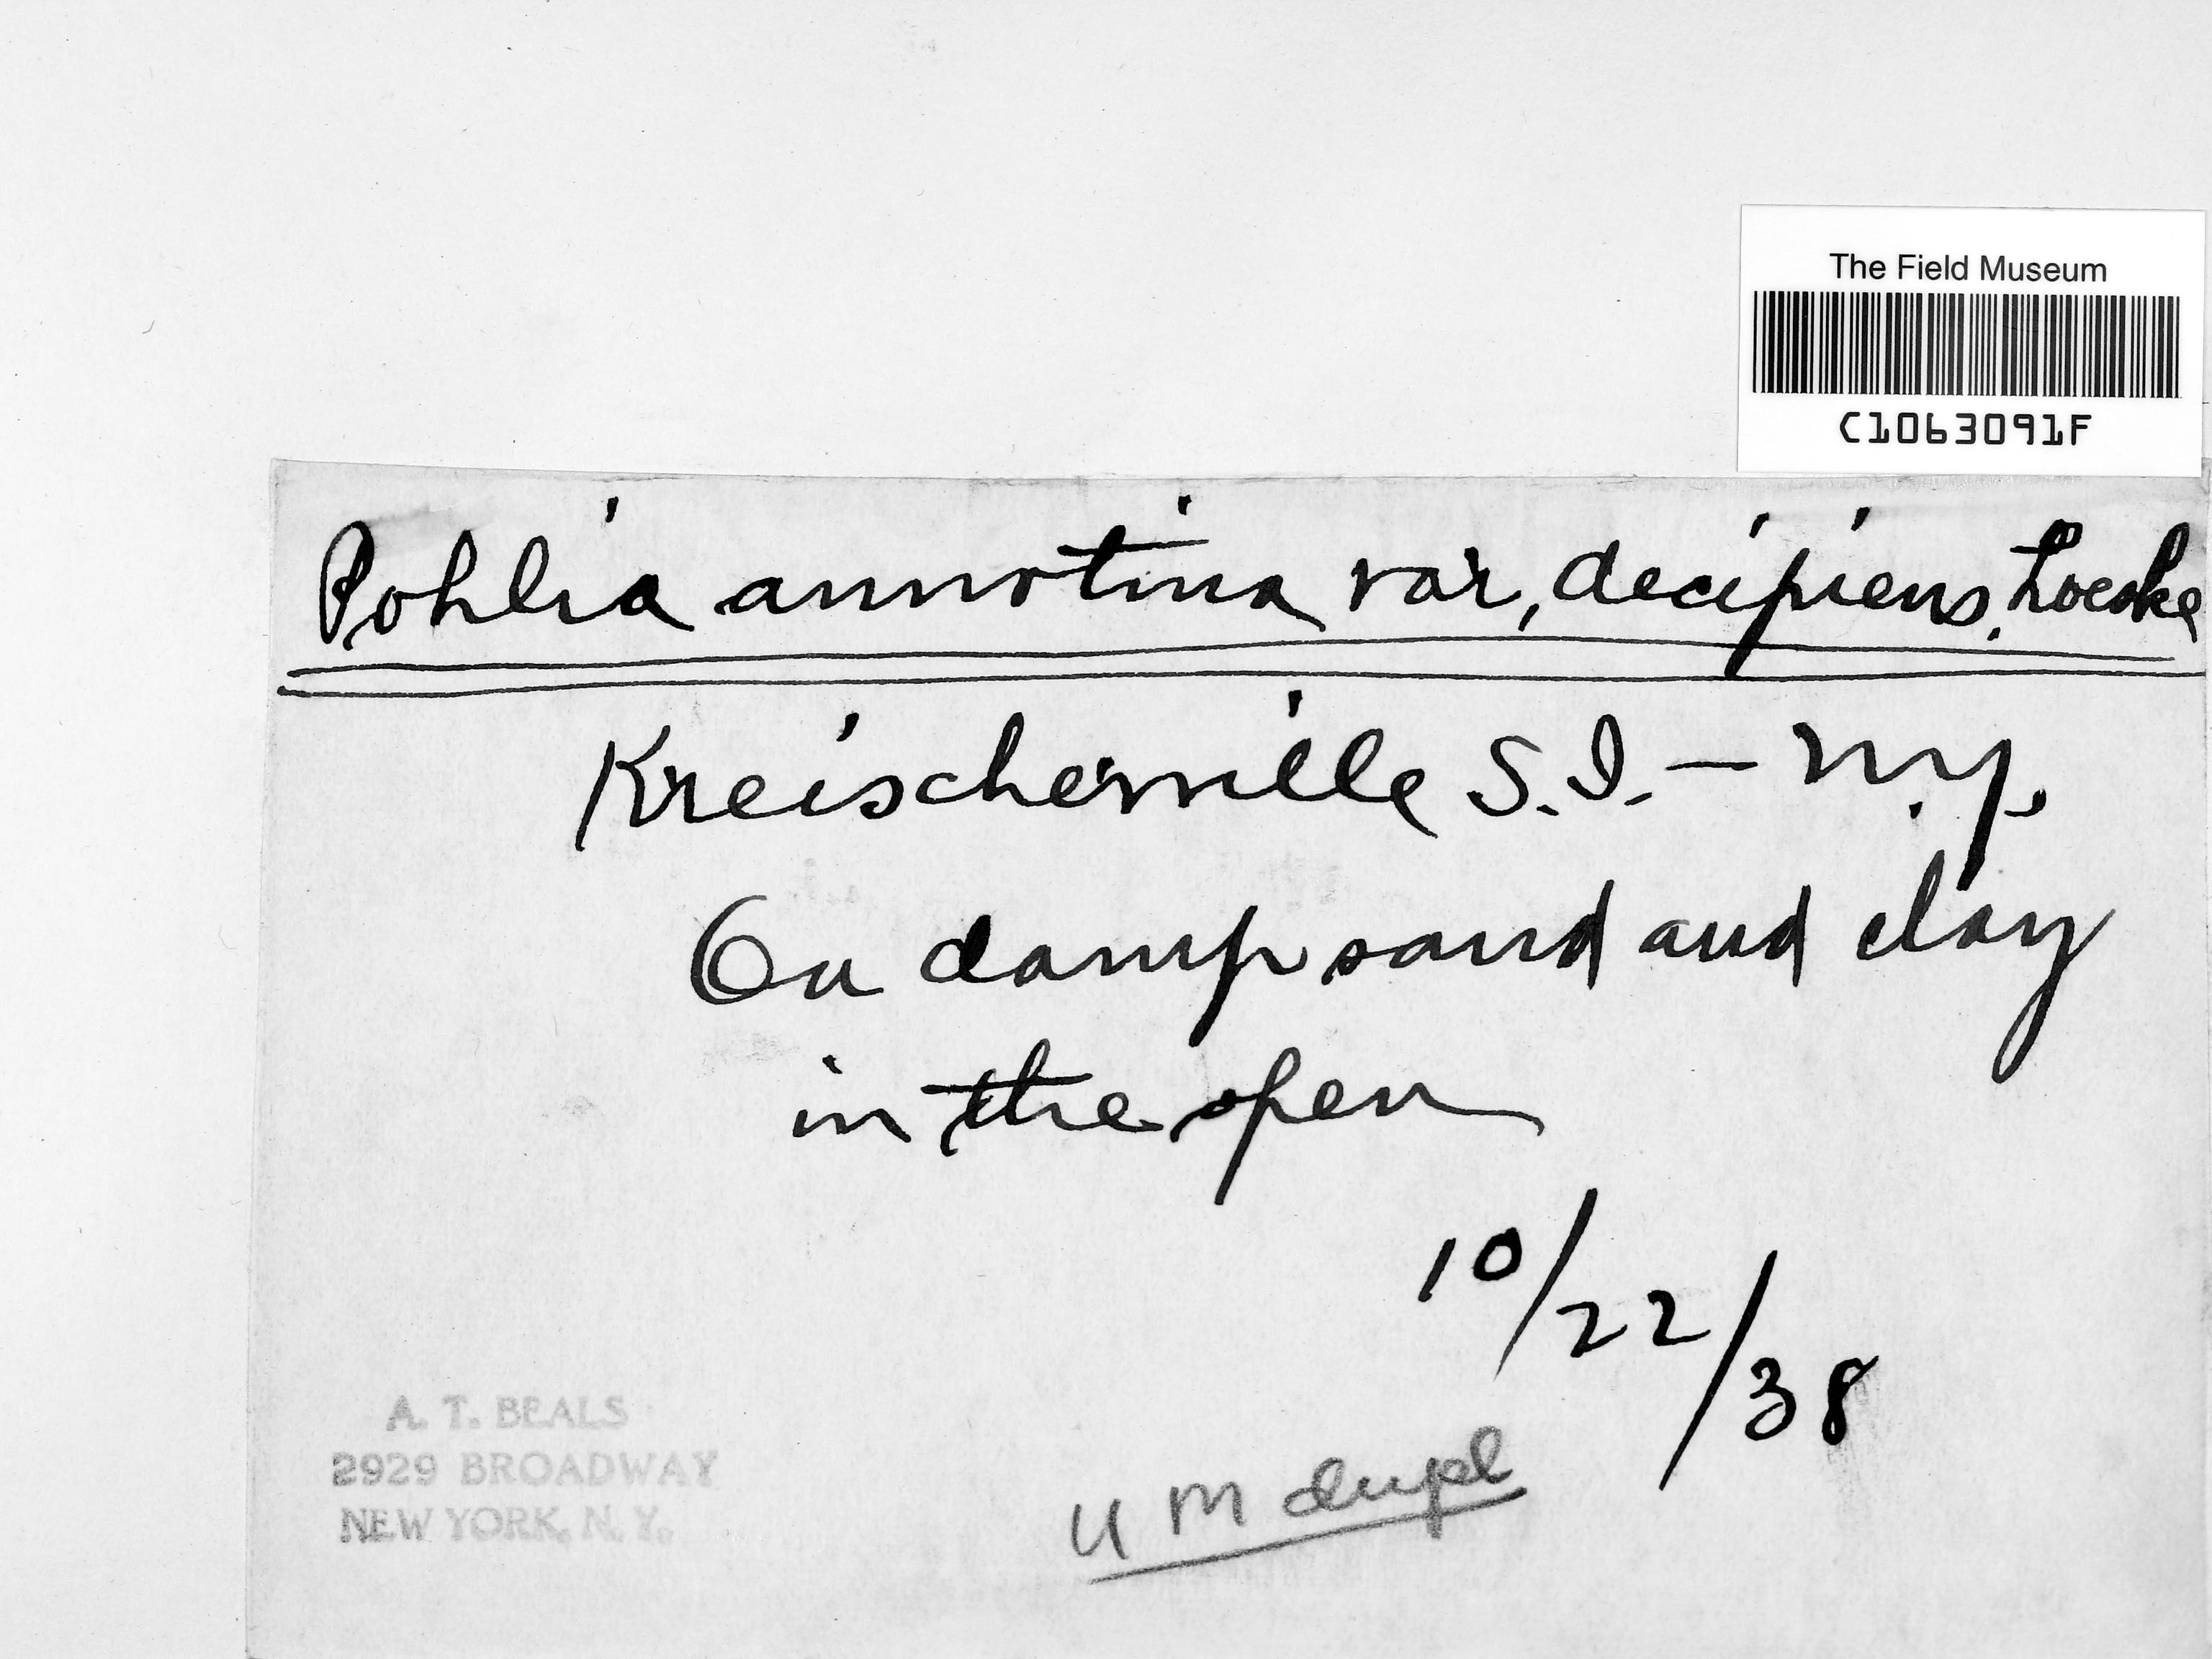 The Field Museum
C1063091F
Pohlia annotina var, decipiens, Loeske
Kreischerville S.I. - N.Y.
On damp sand and clay
in the open
10/22/38
A. T. BEALS
2929 BROADWAY
NEW YORK, N. Y.
U M dupl